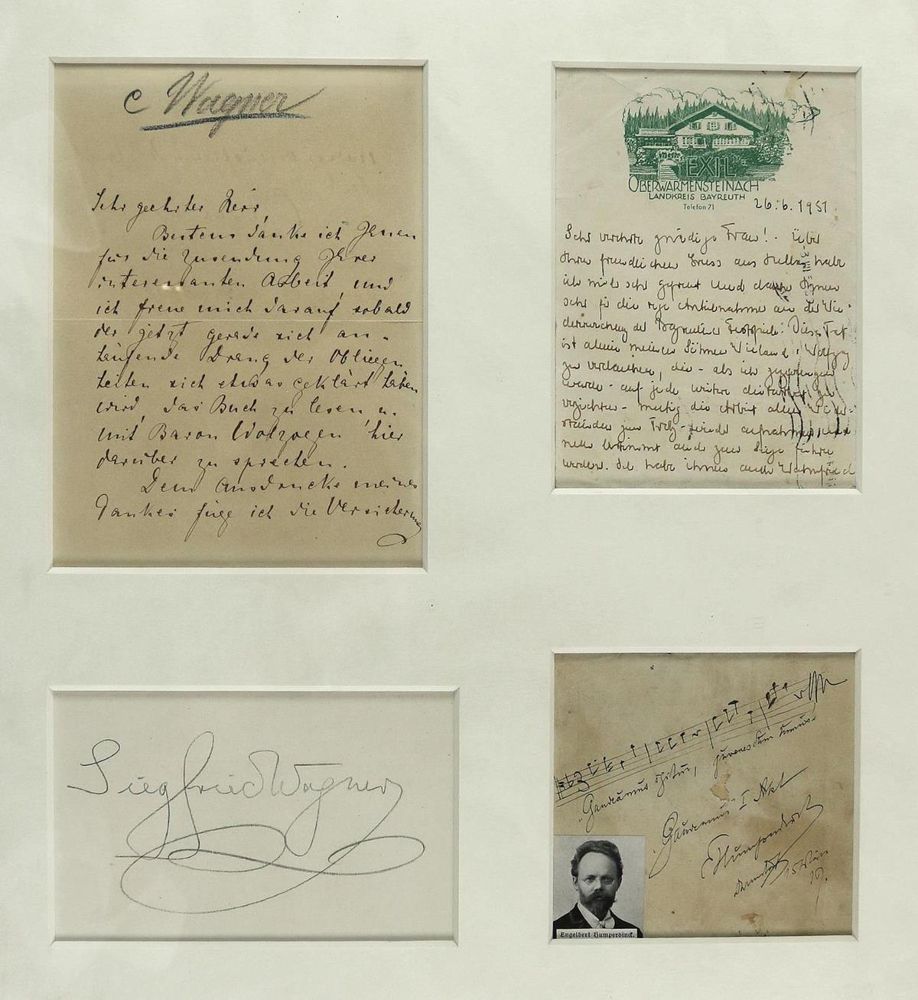 C Wagner
Sehr geehrter Herr,
Bestens danke ich Ihnen
für die Zusendung Ihrer
interessanten Arbeit, und
ich freue mich darauf sobald
der jetzt gerade sich an-
häufende Drang der Obliegen
heiten sich etwas geklärt haben
wird, das Buch zu lesen u.
mit Baron Wolzogen hier
darüber zu sprechen.
Dem Ausdrucke meines
Dankes füge ich die Versicherung
EXIL
OBERWARMENSTEINACH
LANDKREIS BAYREUTH
Telefon 71
26.6.1951.
Sehr verehrte gnädige Frau! Über
Ihren freundlichen Gruss aus habe
ich mich sehr gefreut und danke Ihnen
sehr für die rege Anteilnahme an der Wie-
dererweckung der Bayreuther Festspiele. Diese Tat
ist allein meinen Söhnen Wieland u. Wolfgang
zu verdanken, die - als ich gezwungen
wurde - auf jede weitere zu
verzichten - mutig die Arbeit allen Wider-
ständen zum Trotz wieder aufnahmen und
bestimmt auch zum Siege führen
werden. Ich habe ihnen auch Wahnfried
Siegfried Wagner
"Gaudeamus igitur, juvenes dum sumus"
Gaudeamus I Akt
Humperdinck
15 März
19.
Engelbert Humperdinck.